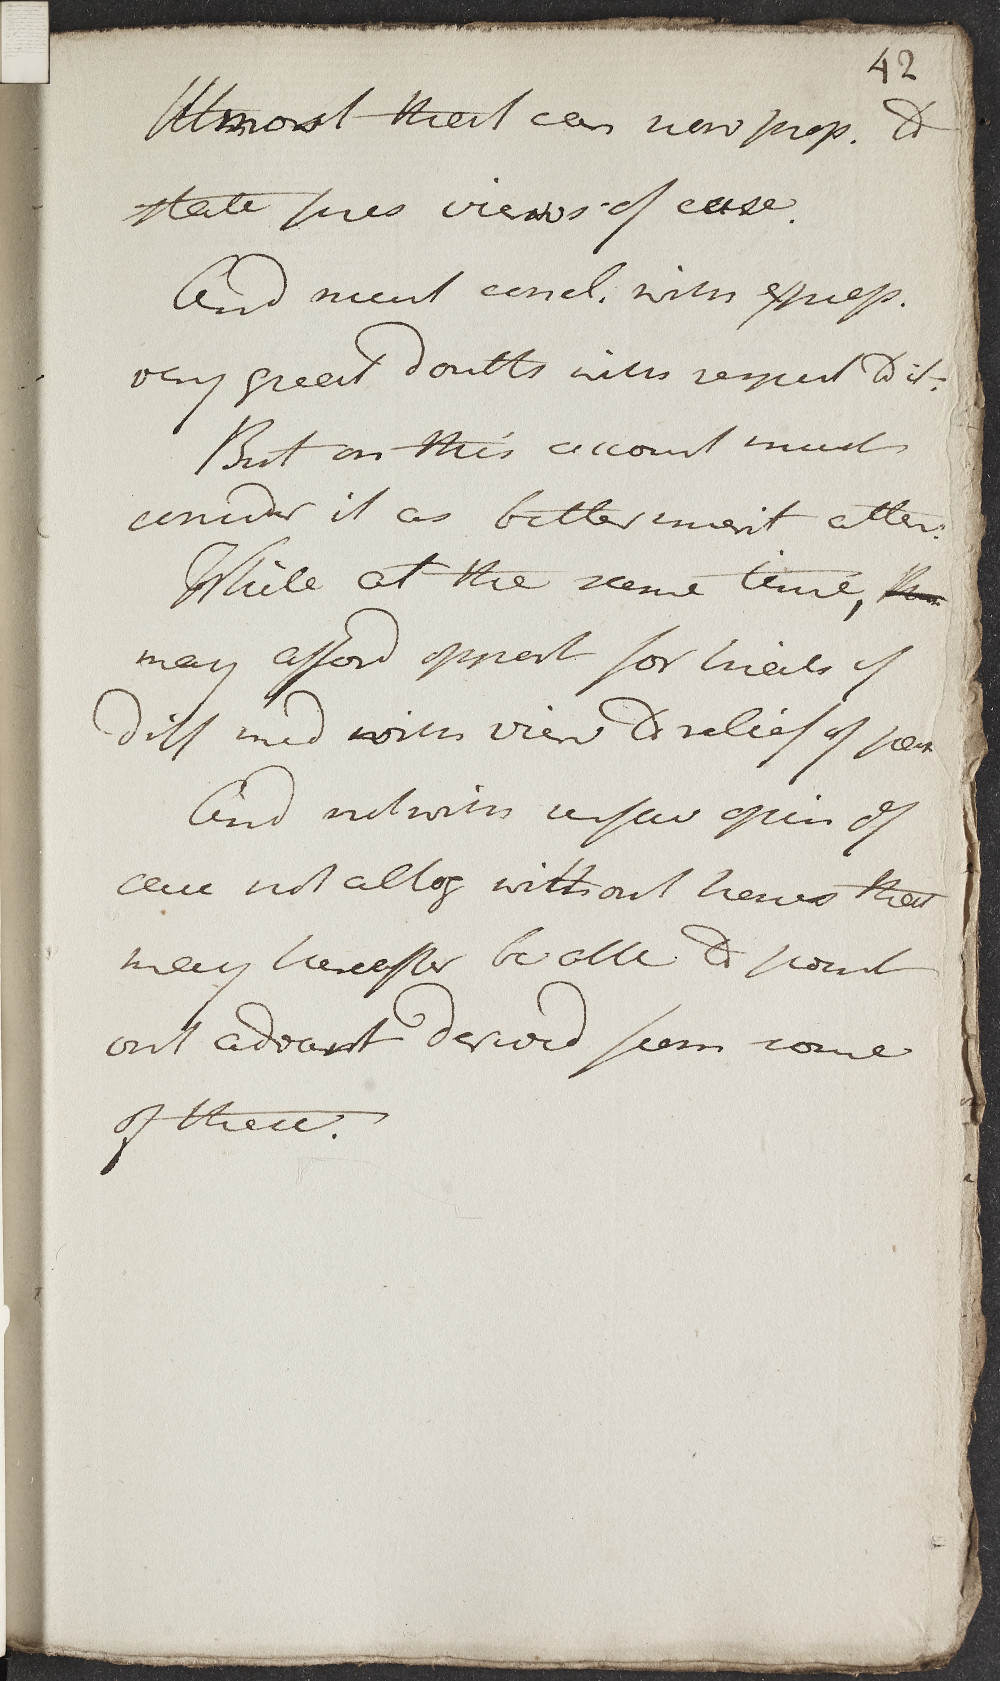 42
Utmost that can now prop. to
state pres views of case.
And must concl. with express.
very great doubts with respect to it.
But on this account must
consider it as better merit atten:
While at the same time,
may afford opport for trials of
diff med with view to relief of pat
And notwith unfav opin of
case not altog without hopes that
may hereafter be able to point
out advant derived from some
of these.